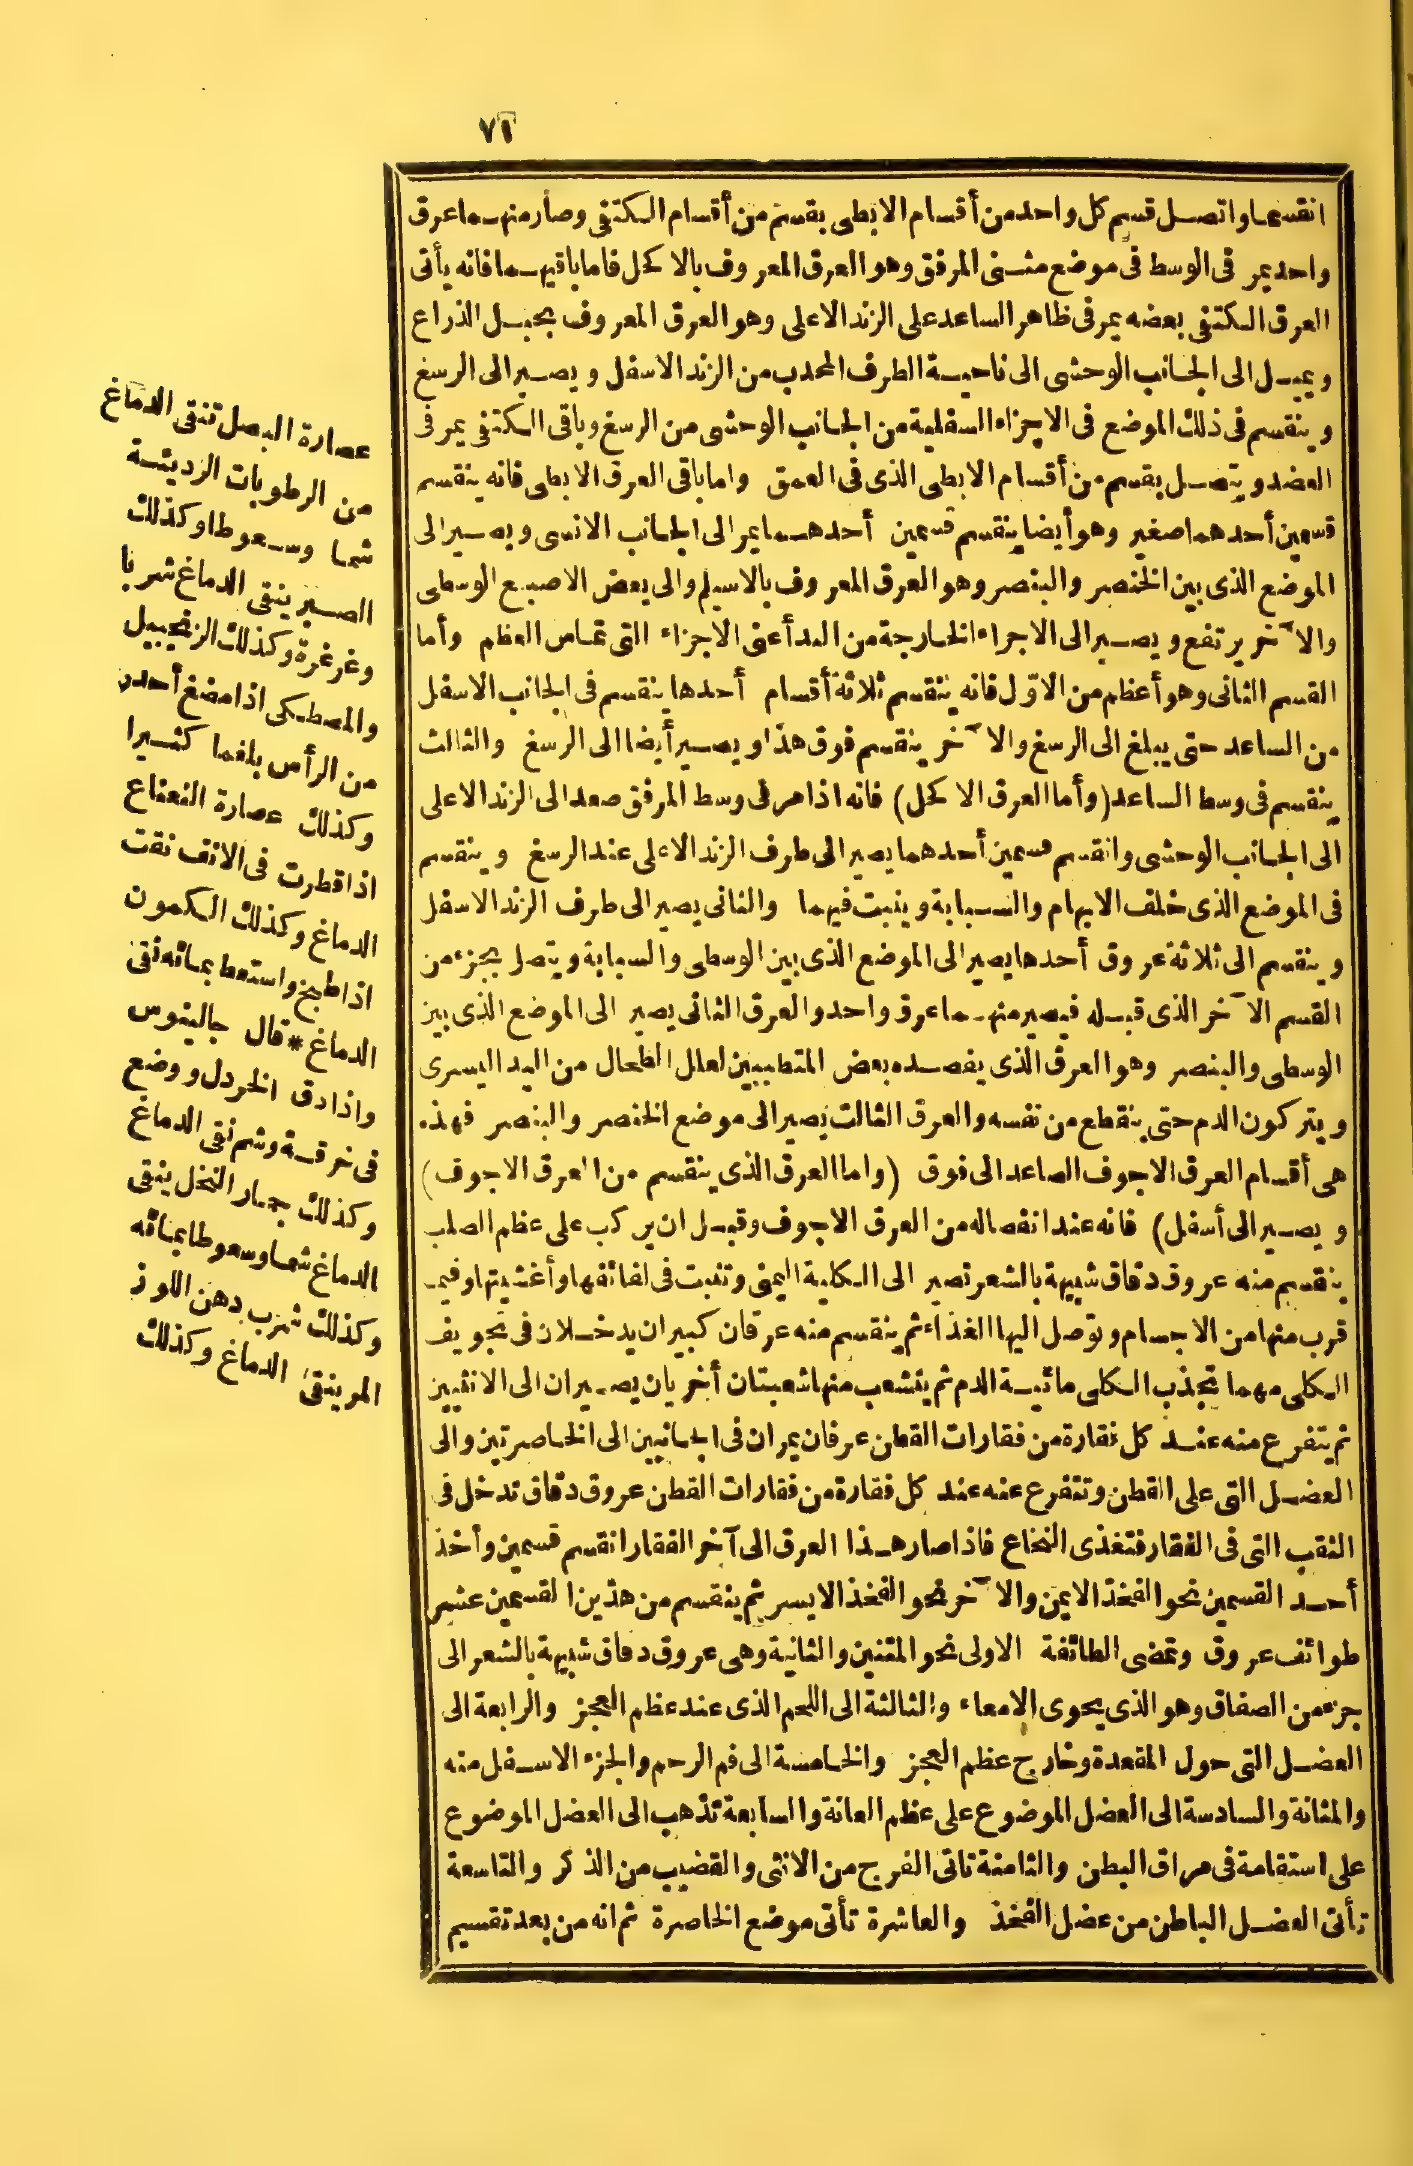 ٧١
انقسما واتصل قسم كل واحد من أقسام الابطى بقسم من أقسام الكتفى وصار منهما عرق
واحد يمر فى الوسط فى موضع مثنى المرفق وهو العرق المعروف بالا كحل فاما باقيهما فانه يأتى
العرق الكتفى بعضه يمر فى ظاهر الساعد على الزند الاعلى وهو العرق المعروف بحبل الذراع
ويميل الى الجانب الوحشى الى ناحية الطرف المحدب من الزند الاسفل ويصير الى الرسغ
وينقسم فى ذلك الموضع فى الاجزاء السفلية من الجانب الوحشى من الرسغ وباقى الكتفى يمر فى
العضد ويتصل بقسم من أقسام الابطى الذى فى العمق واما باقى العرق الابطى فانه ينقسم
قسمين أحدهما صغير وهو أيضا ينقسم قسمين أحدهما يمر الى الجانب الانسى ويصير الى
الموضع الذى بين الخنصر والبنصر وهو العرق المعروف بالاسيلم والى بعض الاصبع الوسطى
والآخر يرتفع ويصير الى الاجراء الخارجة من اليد أعنى الاجزاء التى تماس العظم وأما
القسم الثانى وهو أعظم من الاوّل فانه ينقسم ثلاثة أقسام أحدها ينقسم فى الجانب الاسفل
من الساعد حتى يبلغ الى الرسغ والآخر ينقسم فوق هذا ويصير أيضا الى الرسغ والثالث
ينقسم فى وسط الساعد (وأما العرق الا كحل) فانه اذا مر فى وسط المرفق صعد الى الزند الاعلى
الى الجانب الوحشى وانقسم قسمين أحدهما يصير الى طرف الزند الاعلى عند الرسغ وينقسم
فى الموضع الذى خلف الابهام والسبابة وينبت فيهما والثانى يصير الى طرف الزند الاسفل
وينقسم الى ثلاثة عروق أحدها يصير الى الموضع الذى بين الوسطى والسبابة ويتصل بجزء من
القسم الآخر الذى قبله فيصير منهما عرق واحد والعرق الثانى يصير الى الموضع الذى بين
الوسطى والبنصر وهو العرق الذى يفصده بعض المتطببين لعلل الطحال من اليد اليسرى
ويتركون الدم حتى ينقطع من نفسه والعرق الثالث يصير الى موضع الخنصر والبنصر فهذه
هى أقسام العرق الاجوف الصاعد الى فوق (واما العرق الذى ينقسم من العرق الاجوف)
ويصير الى أسفل) فانه عند انفصاله من العرق الاجوف وقبل ان يركب على عظم الصلب
ينقسم منه عروق دقاق شبيهة بالشعر تصير الى الكلية اليمنى وتنبت فى لفائفها وأغشيتها وفيما
قرب منها من الاجسام وتوصل اليها الغذاء ثم ينقسم منه عرقان كبيران يدخلان فى تجويف
الكلى مهما تجذب الكلى مائية الدم ثم يتشعب منها شعبتان أخريان يصيران الى الانثيين
ثم يتفرع منه عند كل نقارة من فقارات القطن عرقان يمران فى الجانبين الى الخاصرتين والى
العضل التى على القطن وتتفرع عنه عند كل فقارة من فقارات القطن عروق دقاق تدخل فى
الثقب التى فى الفقار فتغذى النخاع فاذا صار هذا العرق الى آخر الفقار انقسم قسمين وأخذ
أحد القسمين نحو الفخذ الايمن والآخر نحو الفخذ الايسر ثم ينقسم من هذين القسمين عشر
طوائف عروق وتمضى الطائفة الاولى نحو المتنين والثانية وهى عروق دقاق شبيهة بالشعر الى
جزء من الصفاق وهو الذى يحوى الامعاء والثالثة الى اللحم الذى عند عظم العجز والرابعة الى
العضل التى حول المقعدة وخارج عظم العجز والخامسة الى فم الرحم والجزء الاسفل منه
والمثانة والسادسة الى العضل الموضوع على عظم العانة والسابعة تذهب الى العضل الموضوع
على استقامة فى مراق البطن والثامنة تاتى الفرج من الانثى والقضيب من الذكر والتاسعة
تأتى العضل الباطن من عضل الفخذ والعاشرة تأتى موضع الخاصرة ثم انه من بعد تقسيم
عصارة البصل تنقى الدماغ
من الرطوبات الرديئة
شما وسعوطا وكذلك
الصبر ينقى الدماغ شربا
وغرغرة وكذلك الزنجبيل
والمصطكى اذا مضغ أحدر
من الرأس بلغما كثيرا
وكذلك عصارة النعناع
اذا قطرت فى الانف نقت
الدماغ وكذلك الكمون
اذا طبخ واستعط بمائه نقى
الدماغ * قال جالينوس
واذا دق الخردل ووضع
فى خرقة وشم نقى الدماغ
وكذلك جمار النخل ينقى
الدماغ شما وسعوطا بمائه
وكذلك شرب دهن اللوز
المر ينقى الدماغ وكذلك